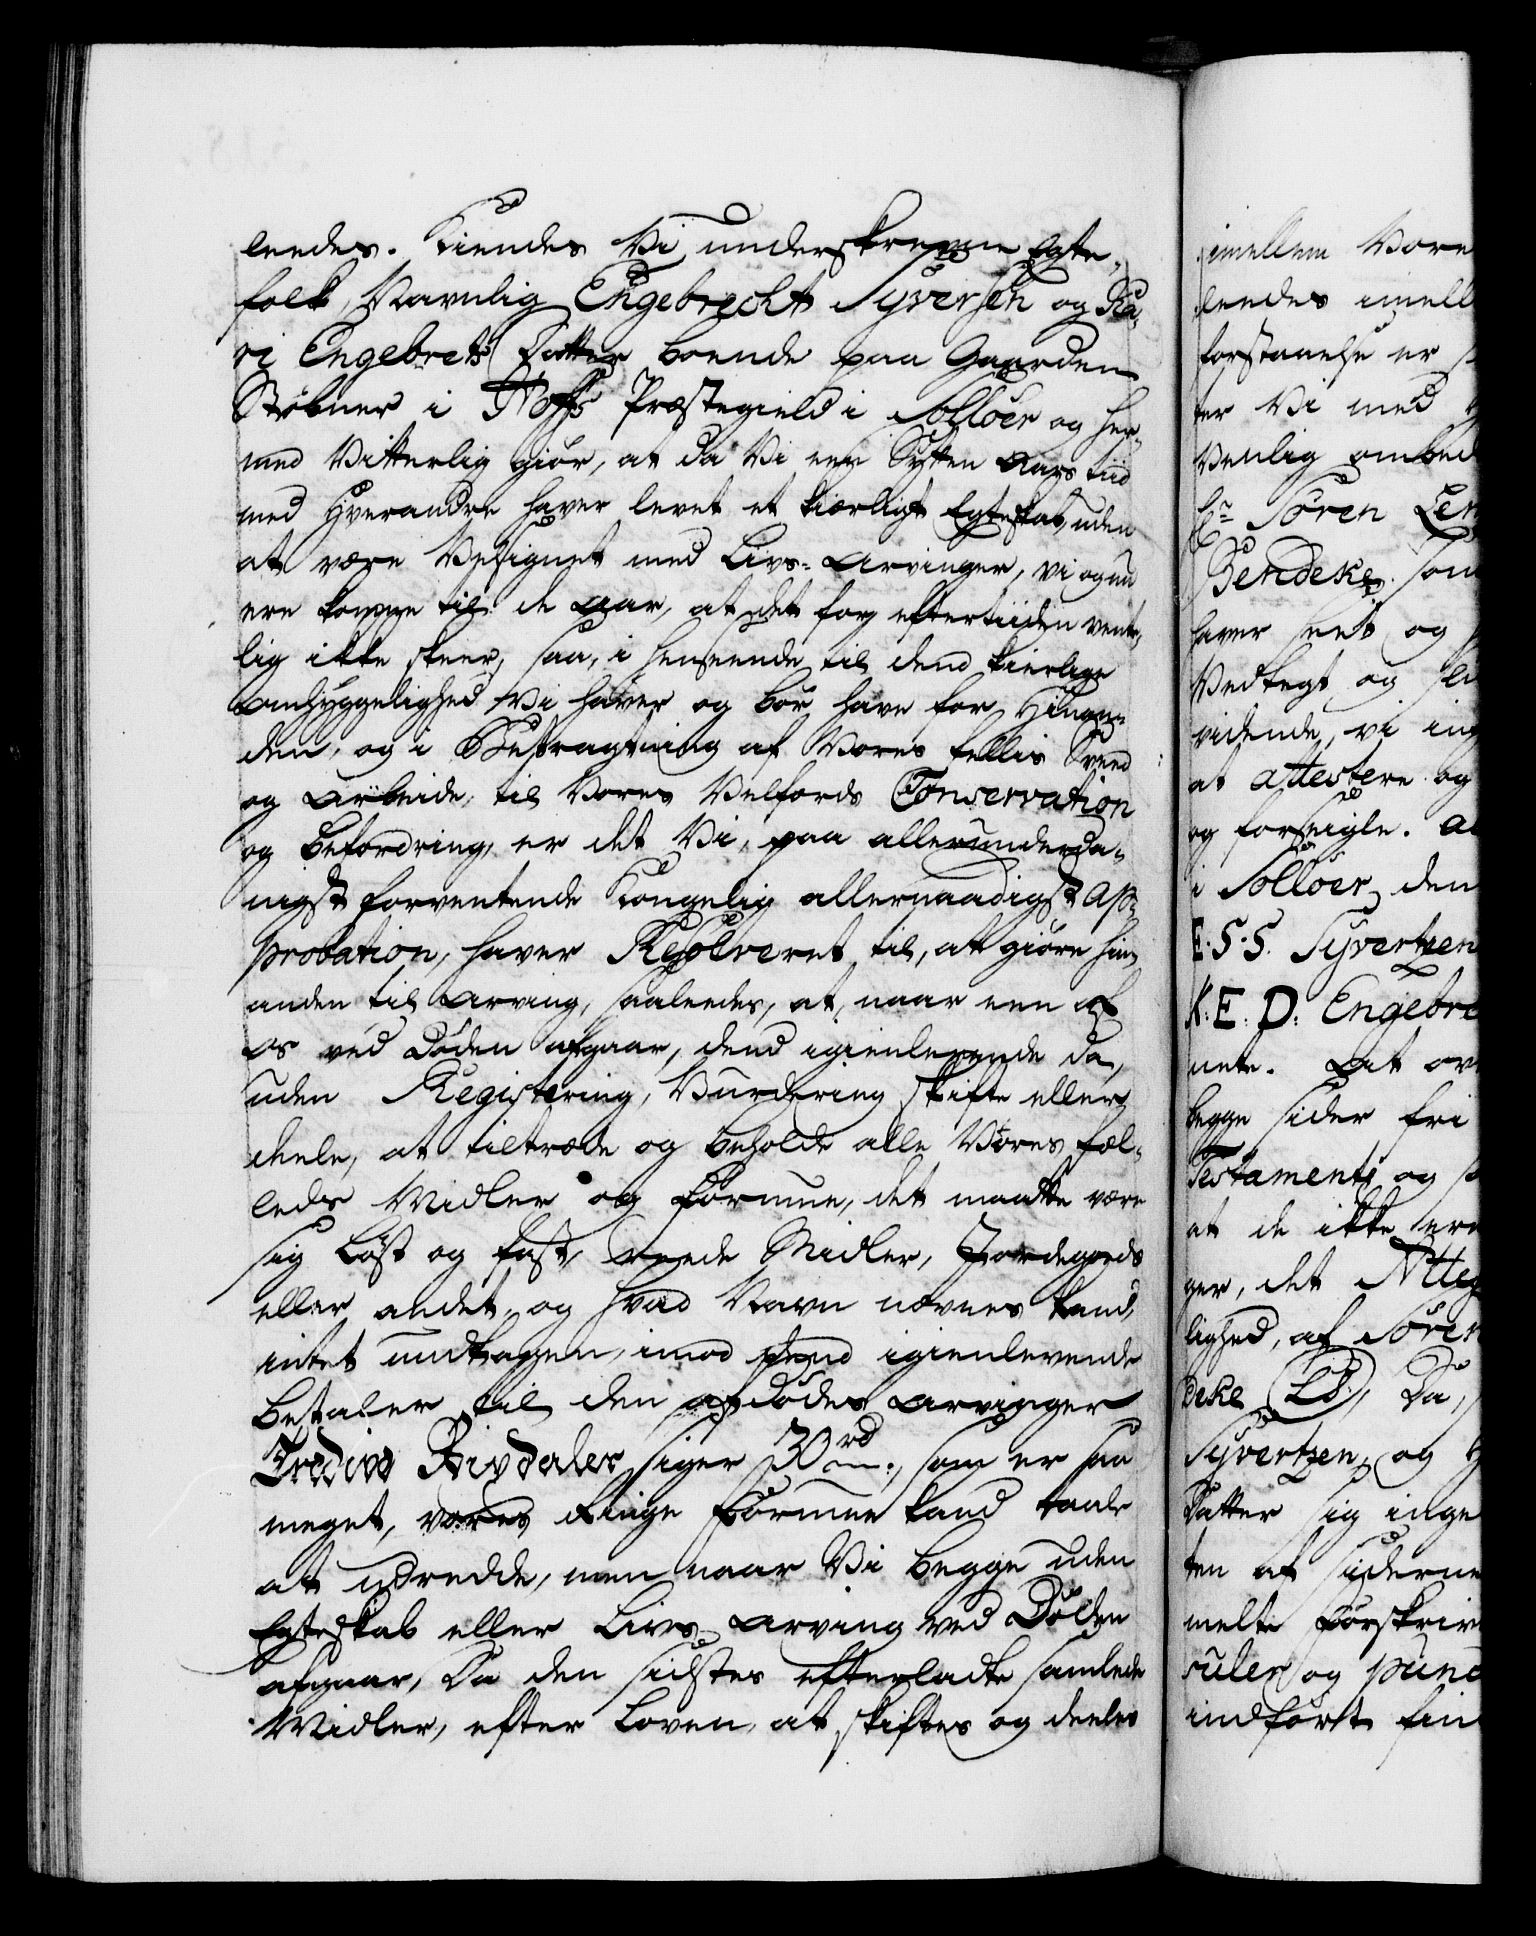 leedes. Kiendes Vi underskrevne Egte-
folk, Navnlig Engebrecht Syversen og Ka-
ri Engebrets Datter boende paa Gaarden
Støbner i Hoffs Præstegield i Solløer og her-
med Vitterlig giør, at da Vi een Sytten Aars tid
med Hverandre haver levet et kiærligt Egteskab, uden
at være Velsignet med Livs-Arvinger, vi og nu
ere komne til de Aar, at det for eftertiiden vente-
lig ikke skeer, saa, i henseende til dend kierlige
Omhyggelighed Vi haver og bør have for Hinan-
den, og i Betragtning af Vores fellis Sveed
og Arbeide, til Vores Velfærds Conservation
og befordring, er det Vi, paa allerunderda-
nigst forventende Kongelig allernaadigst Ap-
probation, haver Resolveret til, at giøre hin-
anden til Arving, saaledes, at, naar een af
os ved Døden afgaar, dend igienlevende da,
uden Registering, Vurdering skifte eller
deele, at tiltræde og beholde alle Vores fæl-
leds Midler og Formue, det maatte være
sig Løst og fast, reede Midler, Jordegods
eller andet, og hvad Navn nævnes kand,
intet undtagen, imod dend igienlevende
betaler til den afdødes Arvinger
Tredive Rixdaler, siger 30 rd., som er saa
meget, vores Ringe Formue kand taale
at udredde, men naar Vi begge uden
Egteskab eller Livs-Arving ved Døden
afgaar, Da den sidstes efterladte samlede
Midler, efter Loven, at skiftes og deeles
imellem Vore
leedes imell
forstaaelse er
ter Vi med
Venlig ombed
Hr Søren Len
Bendeke, som
haver seet og
Vedtegt og
vidende, vi
at attestere og
og forseigle.
i Solløer den
E. S. S. Syvertzen
K: E. D: Engebre
nete. At ov
begge sider fri
Testamente og
at de ikke ere
ger, det Atte
lighed, af Søren
deke (LS), Da,
Syvertzen, og
Datter sig inge
ten af siderne
melte Forskriv
suler og punc
indført fin